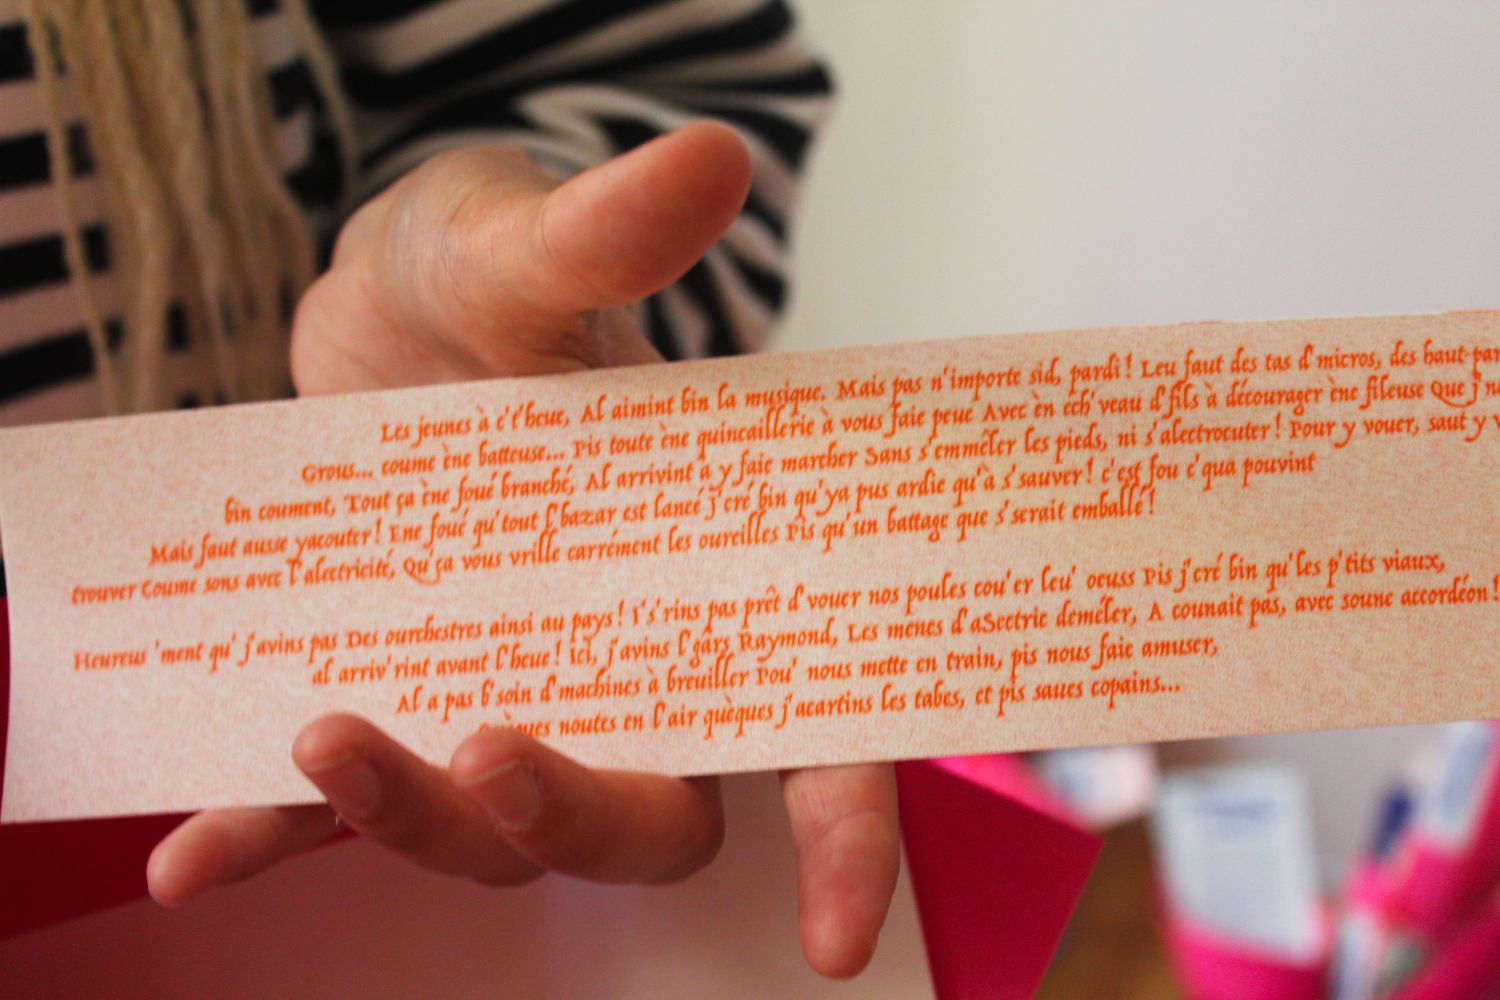 Les jeunes à c't'heue, Al aimint bin la musique. Mais pas n'importe sid, pardi! Leu faut des tas d'micros, des haut-par
Grous... coume ène batteuse... Pis toute ène quincaillerie à vous faie peue Avec èn éch'veau d'fils à décourager ène fileuse Que j'n
bin coument, Tout ça ène foué branché, Al arrivint à y faie marcher Sans s'emmêler les pieds, ni s'alectrocuter! Pour y vouer, saut y v
Mais faut ausse yacouter! Ene foué qu'tout l'bazar est lancé j'cré bin qu'ya pus ardie qu'à s'sauver! c'est fou c'qua pouvint
trouver Coume sons avec l'alectricité, Qu'ça vous vrille carrément les oureilles Pis qu'un battage que s'serait emballé!
Heureus'ment qu'j'avins pas Des ourchestres ainsi au pays! I's'rins pas prêt d'vouer nos poules cou'er leu' oeuss Pis j'cré bin qu'les p'tits viaux,
al arriv'rint avant l'heue! ici, j'avins l'gârs Raymond, Les menes d'aSectric deméler, A counait pas, avec soune accordéon!
Al a pas b'soin d'machines à breuiller Pou' nous mette en train, pis nous faie amuser,
noutes en l'air quèques j'acartins les tabes, et pis saues copains...